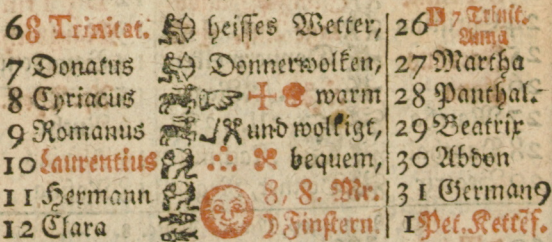 68 Trinitat. heisses Wetter, 26 D 7 Trinit. Anna
7 Donatus Donnerwolken, 27 Martha
8 Cyriacus warm 28 Panthal.
9 Romanus und wolkigt, 29 Beatrix
10 Laurentius bequem, 30 Abdon
11 Hermann 8, 8. Mr. 31 German9
12 Clara Finstern. 1 Pet. Kettēf.